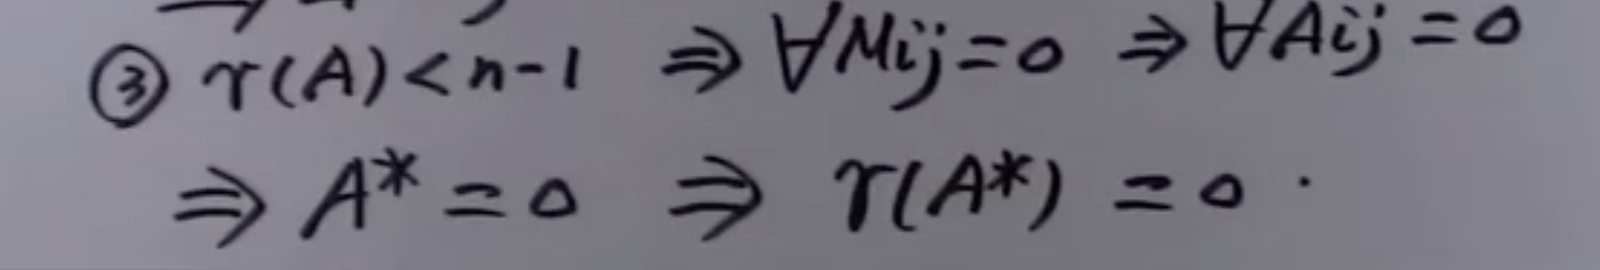 ③ r(A) < n-1 ⇒ ∀Mij = 0 ⇒ ∀Aij = 0
⇒ A* = 0 ⇒ r(A*) = 0.